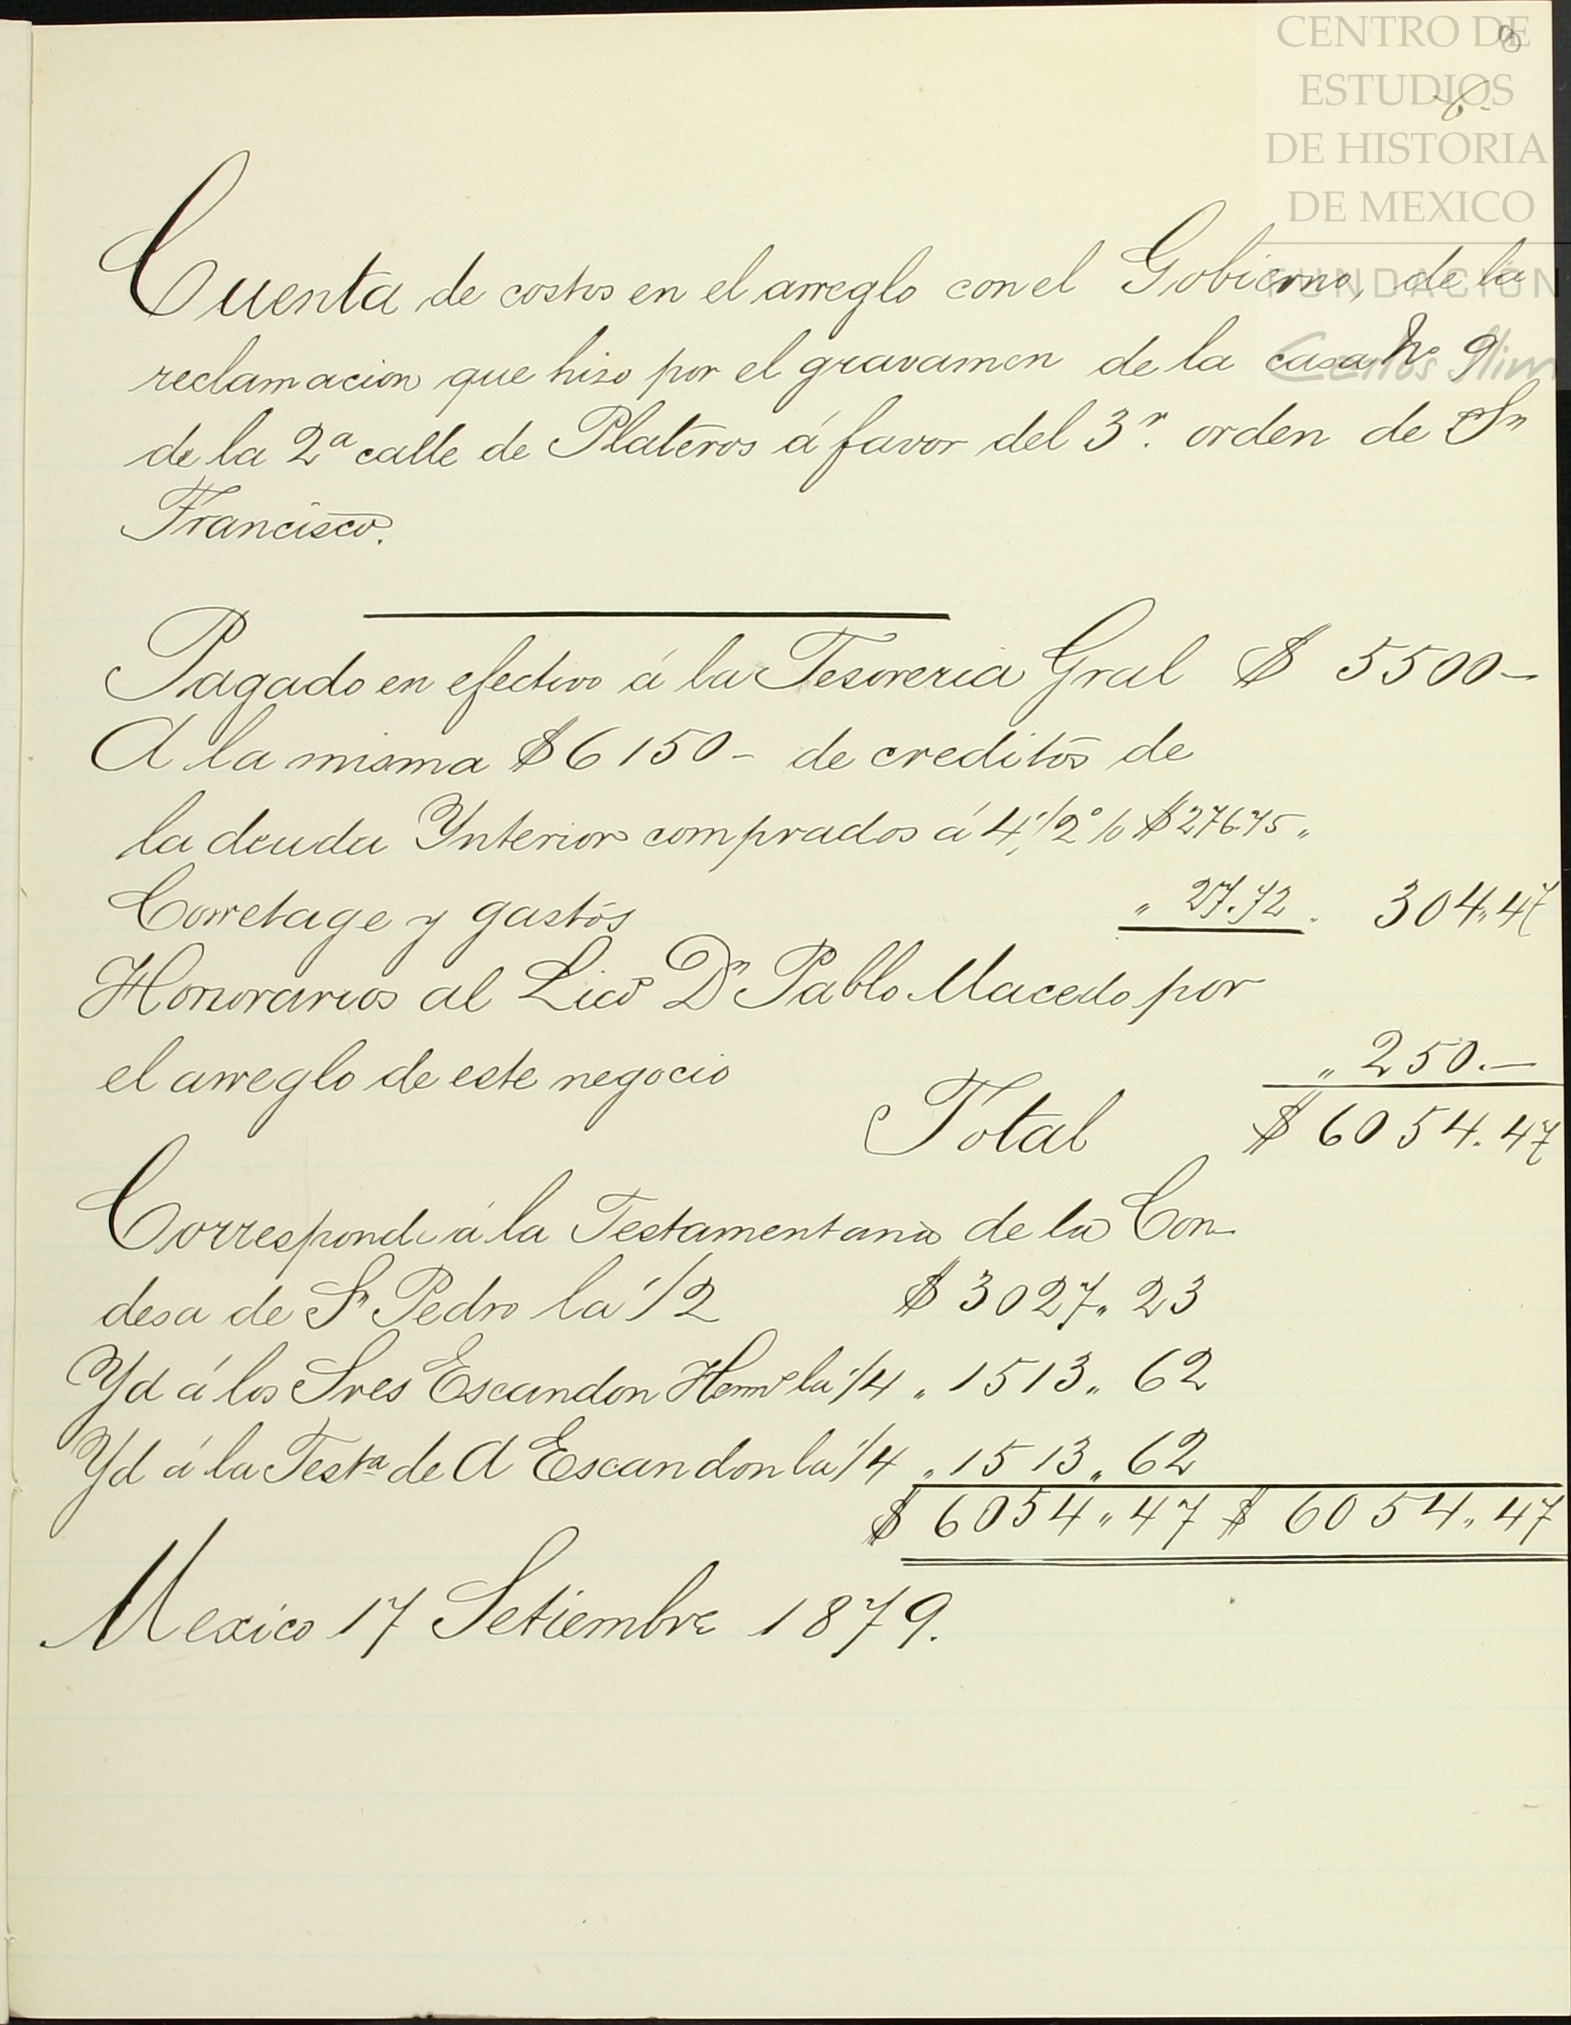 CENTRO DE
ESTUDIOS
DE HISTORIA
DE MEXICO
FUNDACIÓN
Carlos Slim
8
6
Cuenta de costos en el arreglo con el Gobierno, de la
reclamacion que hiso por el gravamen de la casa No 9
de la 2a calle de Plateros á favor del 3r. orden de Sn
Francisco.
Pagado en efectivo á la Tesoreria Gral $ 5500-
A la misma $6150- de creditos de
la deuda Ynterior comprados á 4,1/2 % $276.75 "
Corretage y gastos " 27.72 . 304"47
Honorarios al Lico Dn Pablo Macedo por
el arreglo de este negocio " 250.-
Total $ 6054.47
Corresponde á la Testamentaria de la Con-
desa de Sn Pedro la 1/2 $ 3027"23
Yd á los Sres Escandon Hermo la 1/4 " 1513"62
Yd á la Testa de A Escandon la 1/4 " 1513"62
$ 6054"47 $ 6054"47
Mexico 17 Setiembre 1879.